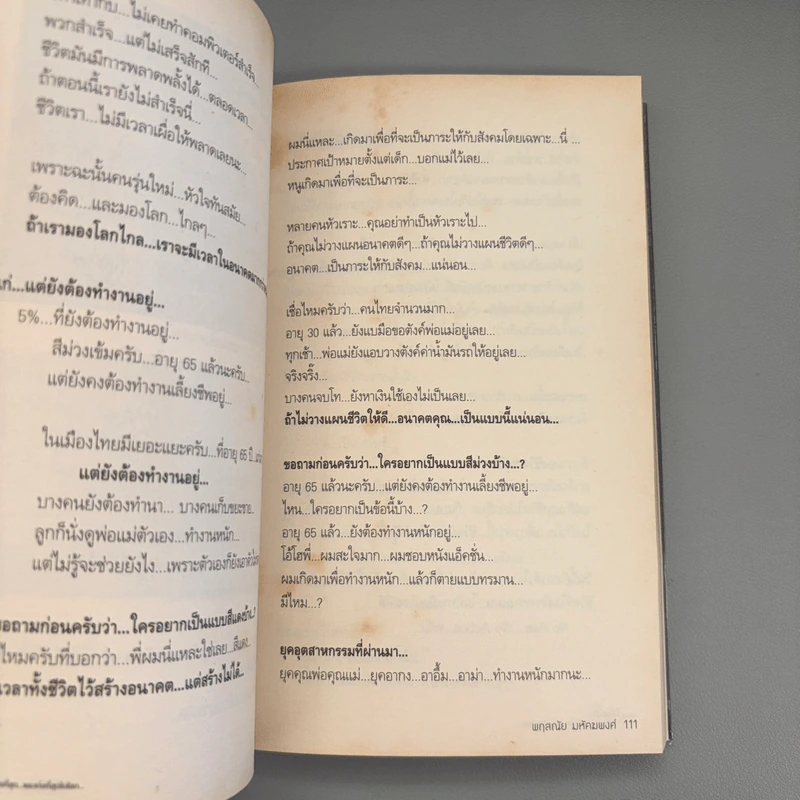 ...ไม่เคยทำคอมพิวเตอร์สำเร็จ...
พวกสำเร็จ...แต่ไม่เสร็จสักที...
ชีวิตมันมีการพลาดพลั้งได้...ตลอดเวลา...
ถ้าตอนนี้เรายังไม่สำเร็จนี่...
ชีวิตเรา...ไม่มีเวลาเผื่อให้พลาดเลยนะ...
เพราะฉะนั้นคนรุ่นใหม่...หัวใจทันสมัย...
ต้องคิด...และมองโลก...ไกลๆ...
ถ้าเรามองโลกไกล...เราจะมีเวลาในอนาคต
...แต่ยังต้องทำงานอยู่...
5%...ที่ยังต้องทำงานอยู่...
สีม่วงเข้มครับ...อายุ 65 แล้วนะครับ...
แต่ยังคงต้องทำงานเลี้ยงชีพอยู่...
ในเมืองไทยมีเยอะแยะครับ...ที่อายุ 65 ปี
แต่ยังต้องทำงานอยู่...
บางคนยังต้องทำนา... บางคนเก็บขยะขาย...
ลูกก็นั่งดูพ่อแม่ตัวเอง...ทำงานหนัก...
แต่ไม่รู้จะช่วยยังไง...เพราะตัวเองก็ยัง
ขอถามก่อนครับว่า...ใครอยากเป็นแบบสีแดงบ้าง..?
ไหมครับที่บอกว่า...พี่ผมนี่แหละใช่เลย...สีแดง...
เวลาทั้งชีวิตไว้สร้างอนาคต...แต่สร้างไม่ได้...
ผมนี่แหละ...เกิดมาเพื่อที่จะเป็นภาระให้กับสังคมโดยเฉพาะ...นี่ ...
ประกาศเป้าหมายตั้งแต่เด็ก...บอกแม่ไว้เลย...
หนูเกิดมาเพื่อที่จะเป็นภาระ...
หลายคนหัวเราะ...คุณอย่าทำเป็นหัวเราะไป...
ถ้าคุณไม่วางแผนอนาคตดีๆ...ถ้าคุณไม่วางแผนชีวิตดีๆ...
อนาคต...เป็นภาระให้กับสังคม...แน่นอน...
เชื่อไหมครับว่า...คนไทยจำนวนมาก...
อายุ 30 แล้ว...ยังแบมือขอตังค์พ่อแม่อยู่เลย...
ทุกเช้า...พ่อแม่ยังแอบวางตังค์ค่าน้ำมันรถให้อยู่เลย...
จริงจริ๊ง...
บางคนจบโท...ยังหาเงินใช้เองไม่เป็นเลย...
ถ้าไม่วางแผนชีวิตให้ดี...อนาคตคุณ...เป็นแบบนี้แน่นอน...
ขอถามก่อนครับว่า...ใครอยากเป็นแบบสีม่วงบ้าง...?
อายุ 65 แล้วนะครับ...แต่ยังคงต้องทำงานเลี้ยงชีพอยู่...
ไหน...ใครอยากเป็นข้อนี้บ้าง...?
อายุ 65 แล้ว...ยังต้องทำงานหนักอยู่...
โอ้โฮพี่...ผมสะใจมาก...ผมชอบหนังแอ็คชั่น...
ผมเกิดมาเพื่อทำงานหนัก...แล้วก็ตายแบบทรมาน...
มีไหม...?
ยุคอุตสาหกรรมที่ผ่านมา...
ยุคคุณพ่อคุณแม่...ยุคอากง...อาอึ้ม...อาม่า...ทำงานหนักมากนะ...
พฤสณัย มหัคฆพงศ์ 111